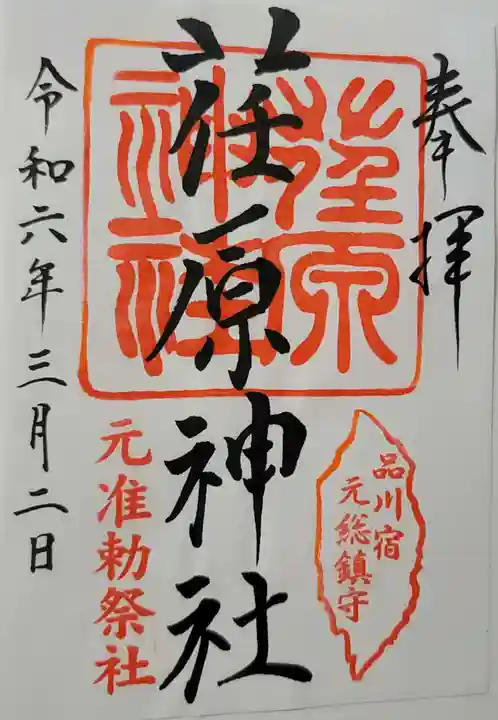 奉拝
荏原神社
荏原
神社
品川宿
元総鎮守
元准勅祭社
令和六年三月二日